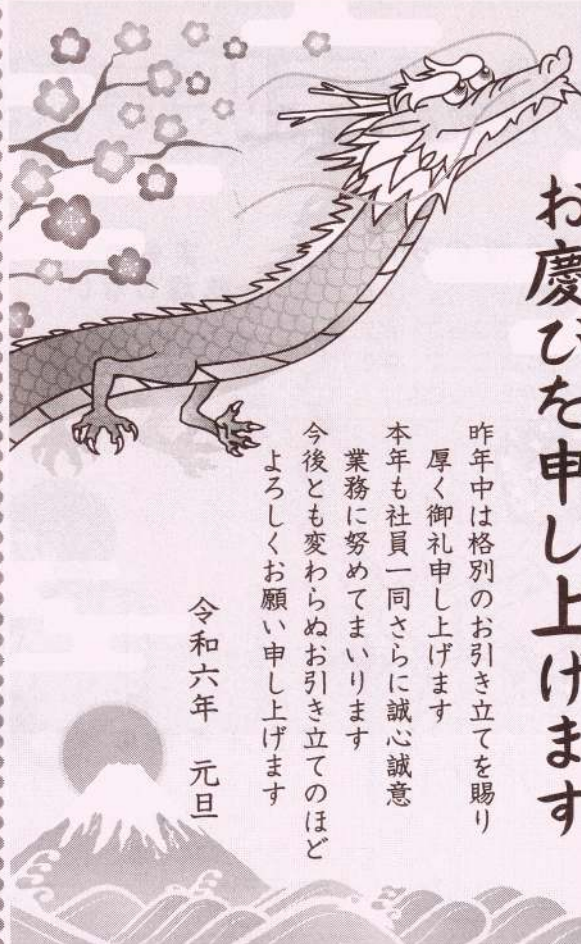 お慶びを申し上げます
昨年中は格別のお引き立てを賜り
厚く御礼申し上げます
本年も社員一同さらに誠心誠意
業務に努めてまいります
今後とも変わらぬお引き立てのほど
よろしくお願い申し上げます
令和六年 元旦